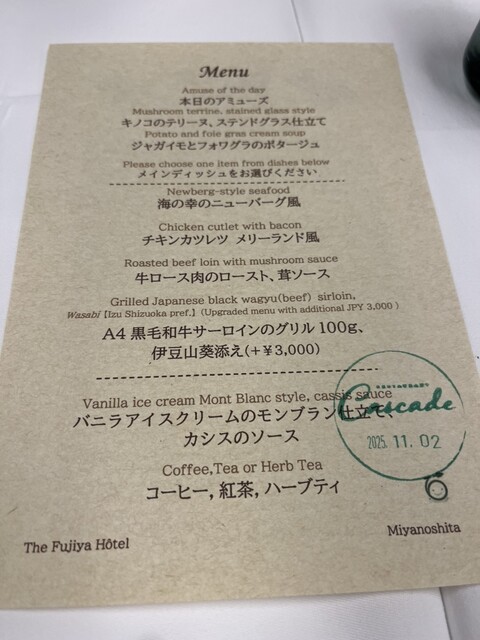 Menu
Amuse of the day
本日のアミューズ
Mushroom terrine, stained glass style
キノコのテリーヌ、ステンドグラス仕立て
Potato and foie gras cream soup
ジャガイモとフォワグラのポタージュ
Please choose one item from dishes below
メインディッシュをお選びください
Newberg-style seafood
海の幸のニューバーグ風
Chicken cutlet with bacon
チキンカツレツ メリーランド風
Roasted beef loin with mushroom sauce
牛ロース肉のロースト、茸ソース
Grilled Japanese black wagyu(beef) sirloin,
Wasabi【Izu Shizuoka pref.】(Upgraded menu with additional JPY 3,000 )
A4 黒毛和牛サーロインのグリル 100g、
伊豆山葵添え(+￥3,000)
Vanilla ice cream Mont Blanc style, cassis sauce
バニラアイスクリームのモンブラン仕立て、
カシスのソース
RESTAURANT
Cascade
2025. 11. 02
Coffee,Tea or Herb Tea
コーヒー, 紅茶, ハーブティ
The Fujiya Hôtel
Miyanoshita